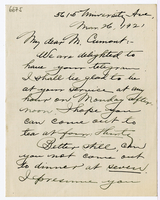 5615 University Ave.
Mar. 26, 1921
My dear M. Cumont:-
We are delighted to
have your telegram.
I shall be glad to be
at your service at any
hour on Monday after
noon. I hope you
can come out to
tea at four thirty.
Better still, can
you not come out
to dinner at seven
I presume you